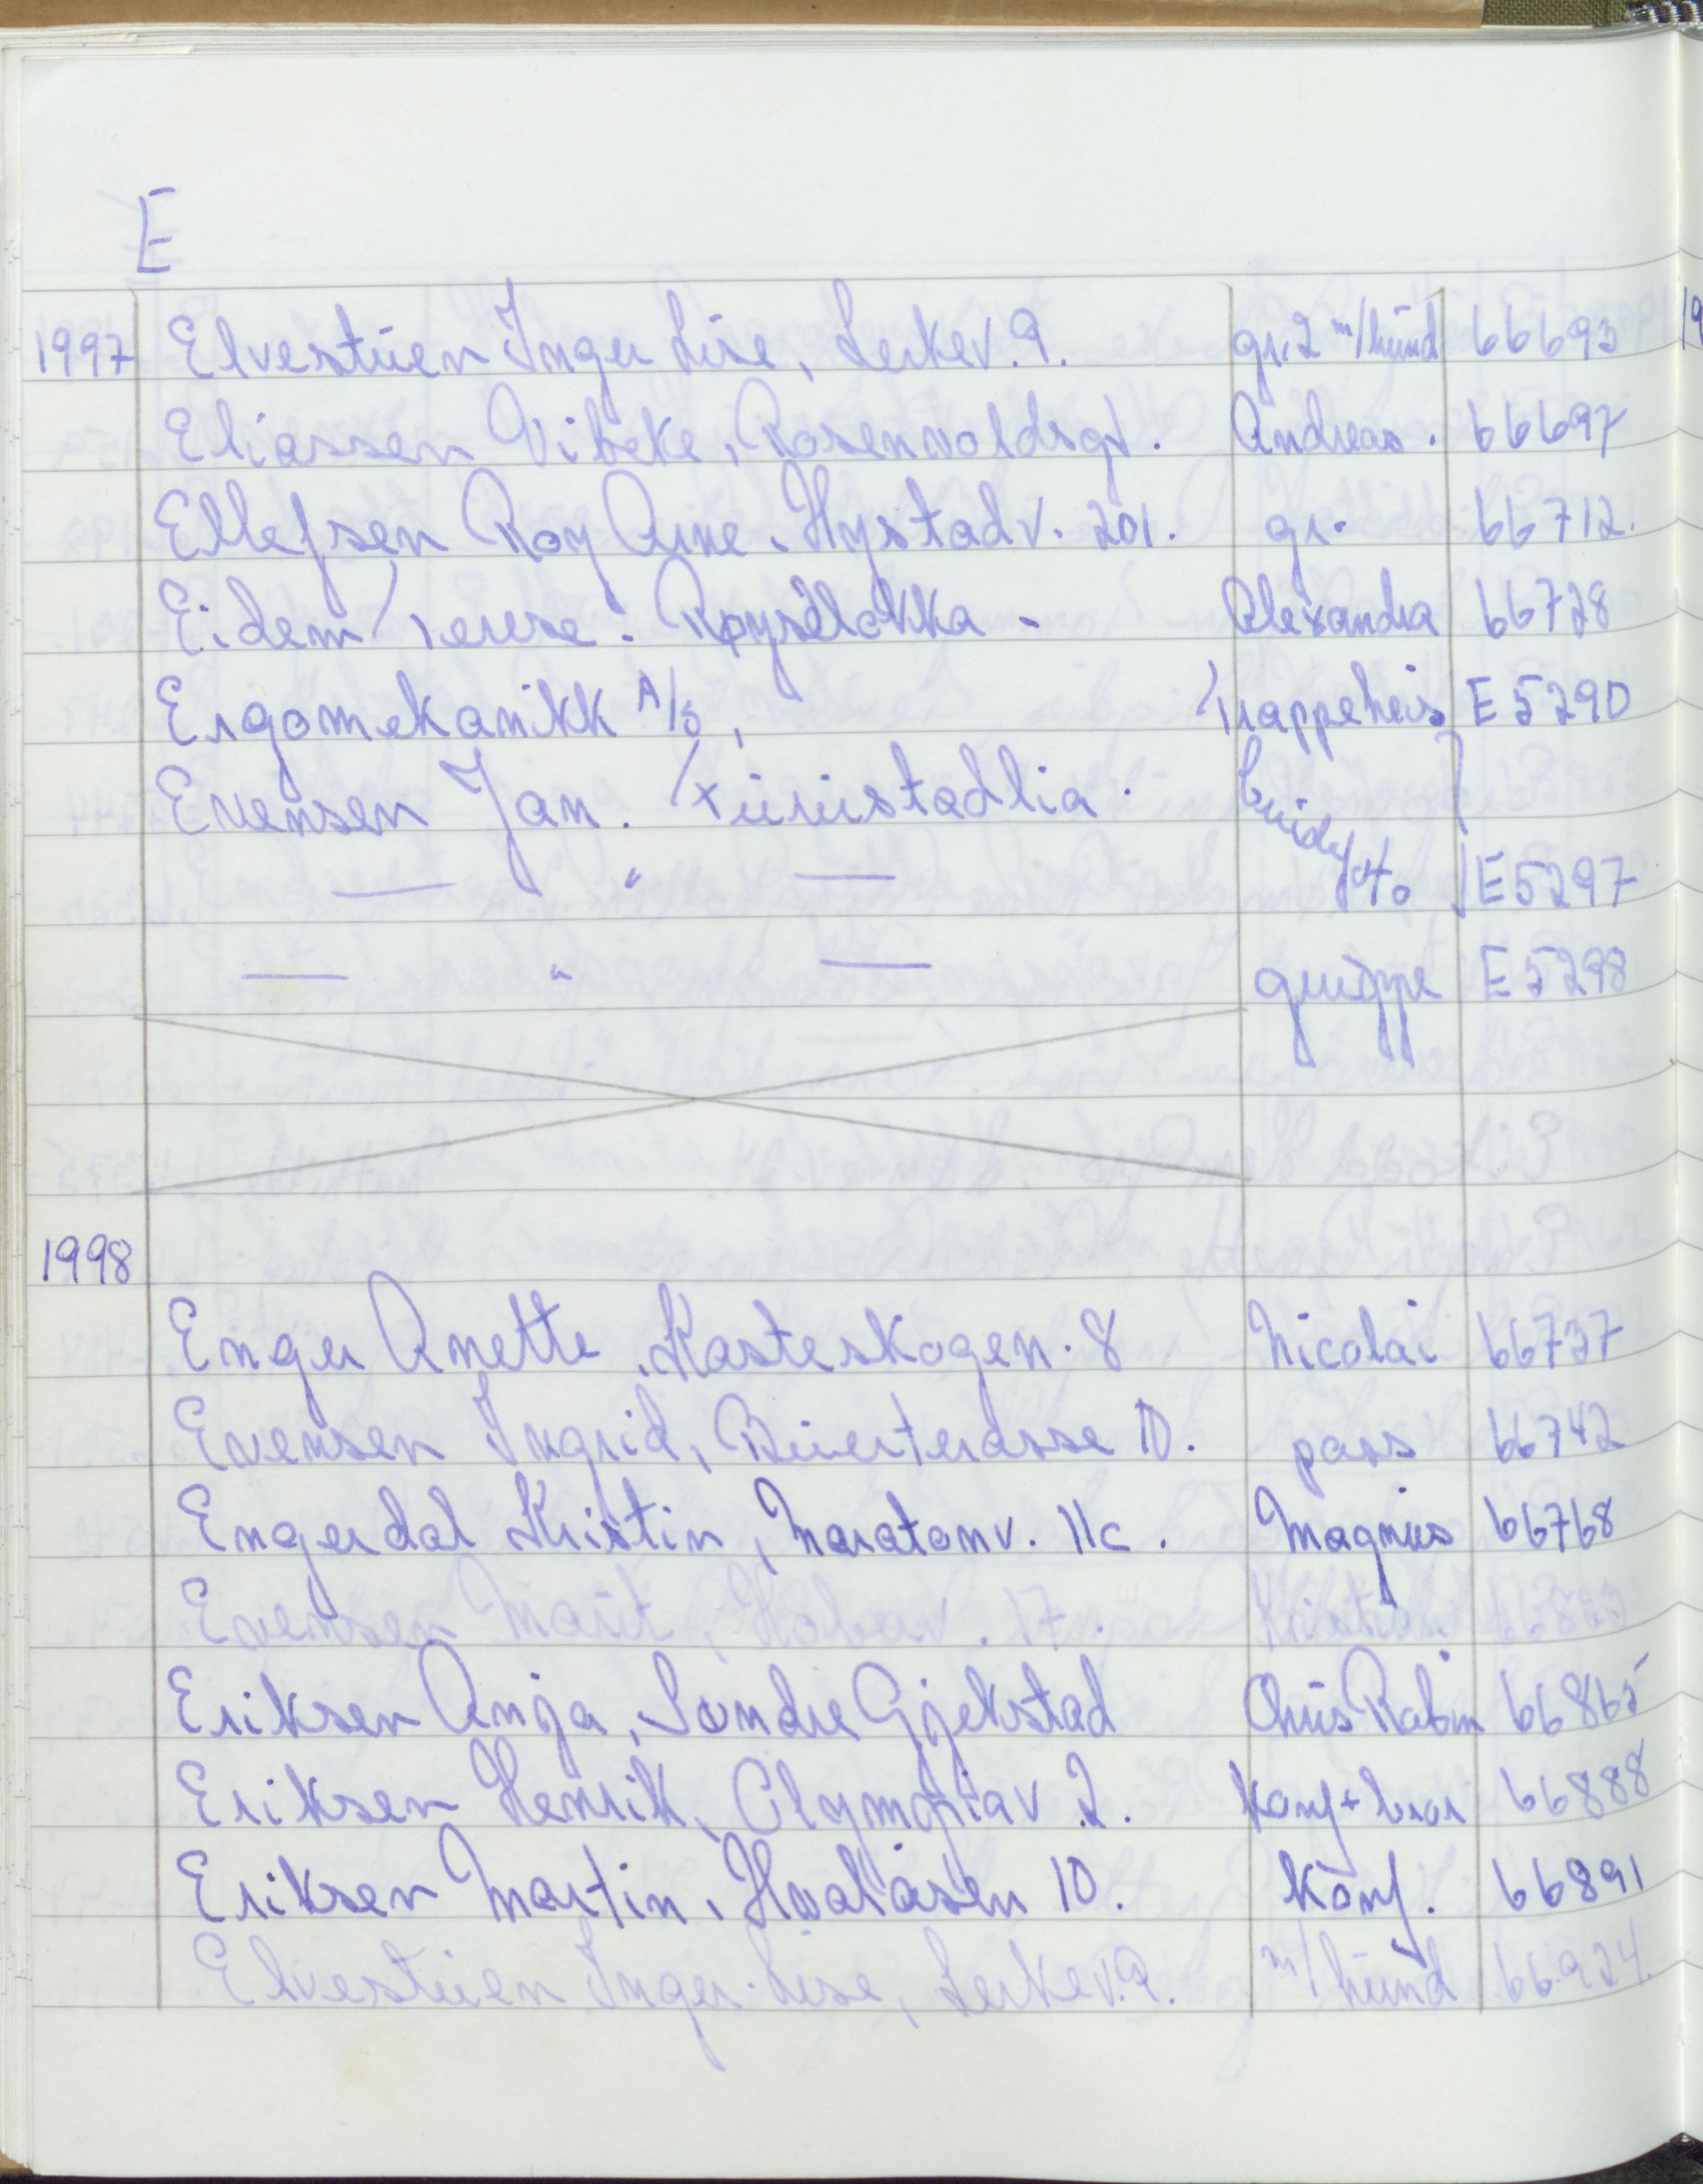 E
1997 Elvestuen Inger Lise, Lerkev. 9. gr. 2 m/hund 66693
Eliassen Vibeke, Rosenvoldsgt. Andreas. 66697
Ellefsen Roy Arne. Hystadv. 201. gr. 66712.
Eidem Terese. Røysslokka - Alexandra 66728
Ergomekanikk A/S, Trappeheis E 5290
Evensen Jan. Furustadlia.
— " — foto E 5297
— " — gruppe E 5298
1998
Enger Anette, Kasteskogen. 8 Nicolai 66737
Evensen Ingrid, Bueerterasse 10. pass 66742
Engerdal Kristin, Maratonv. 11c. Magnus 66768
Evensen Marit, 17. Kristian 66823
Eriksen Anja, Søndre Gjekstad Chris Robin 66865
Eriksen Henrik, Olympiav 2. Konf + bror 66888
Eriksen Martin, Hvalåsen 10. Konf. 66891
Elvestuen Inger-Lise, Lerkev. 9. m/hund 66924.